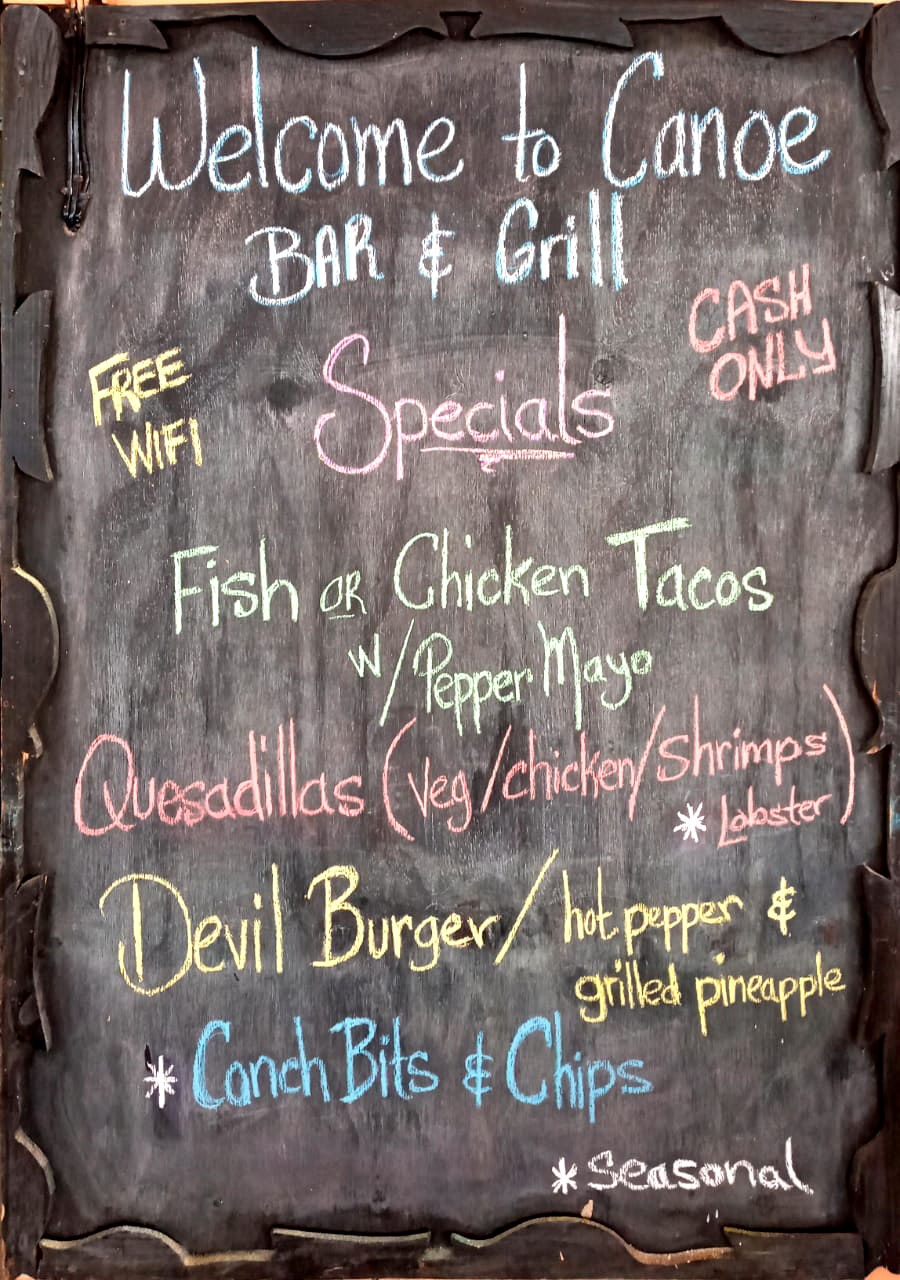 Welcome to Canoe
BAR & Grill
CASH
ONLY
FREE
WIFI
Specials
Fish OR Chicken Tacos
w/Pepper Mayo
Quesadillas (Veg/chicken/Shrimps)
* Lobster
Devil Burger/hot pepper &
grilled pineapple
* Conch Bits & Chips
* Seasonal